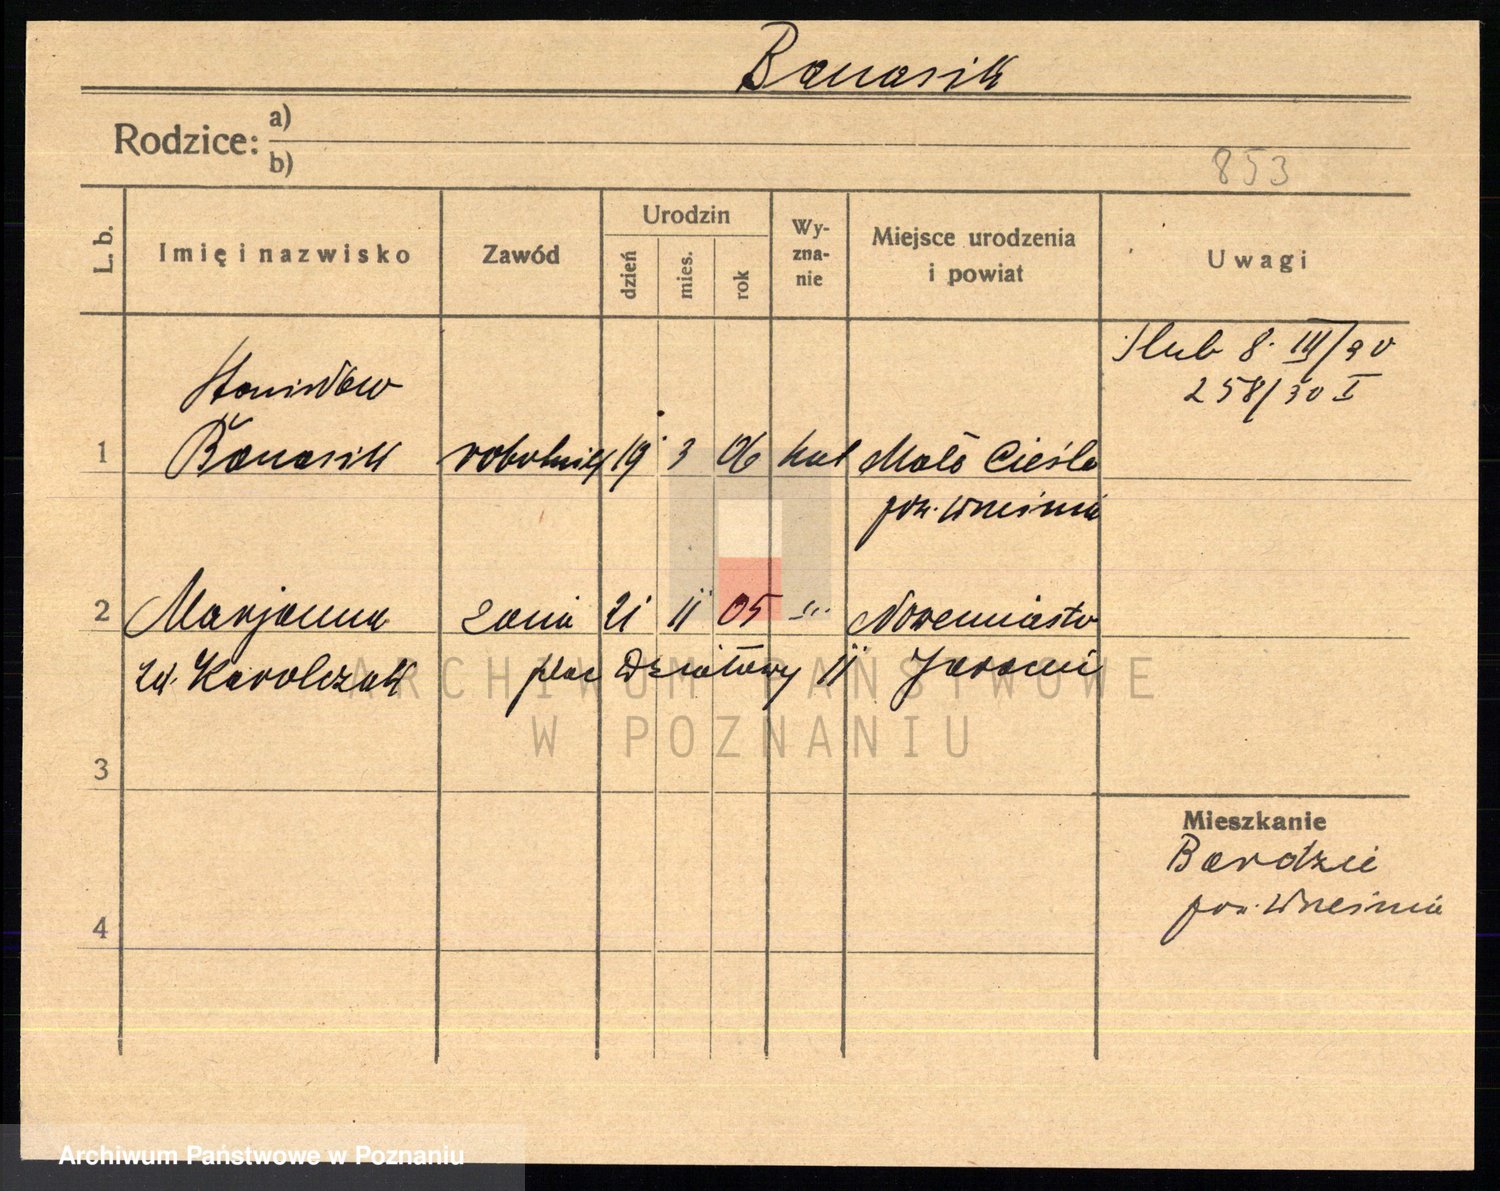 Banasik
Rodzice: a)
b)
853
L. b.
Imię i nazwisko
Zawód
Urodzin
dzień
mies.
rok
Wy-
zna-
nie
Miejsce urodzenia
i powiat
Uwagi
Ślub 8. III/30
258/30 I
Stanisław
1 Banasik robotnik 19 3 06 kat Mała Cieśla
pow. Września
2 Marjanna żona 21 11 05 -"- Nowemiasto
zd. Karolczak plac Działowy 11 Jarocin
3
4
Mieszkanie
Bardzie
pow. Września
ARCHIWUM PAŃSTWOWE
W POZNANIU
Archiwum Państwowe w Poznaniu